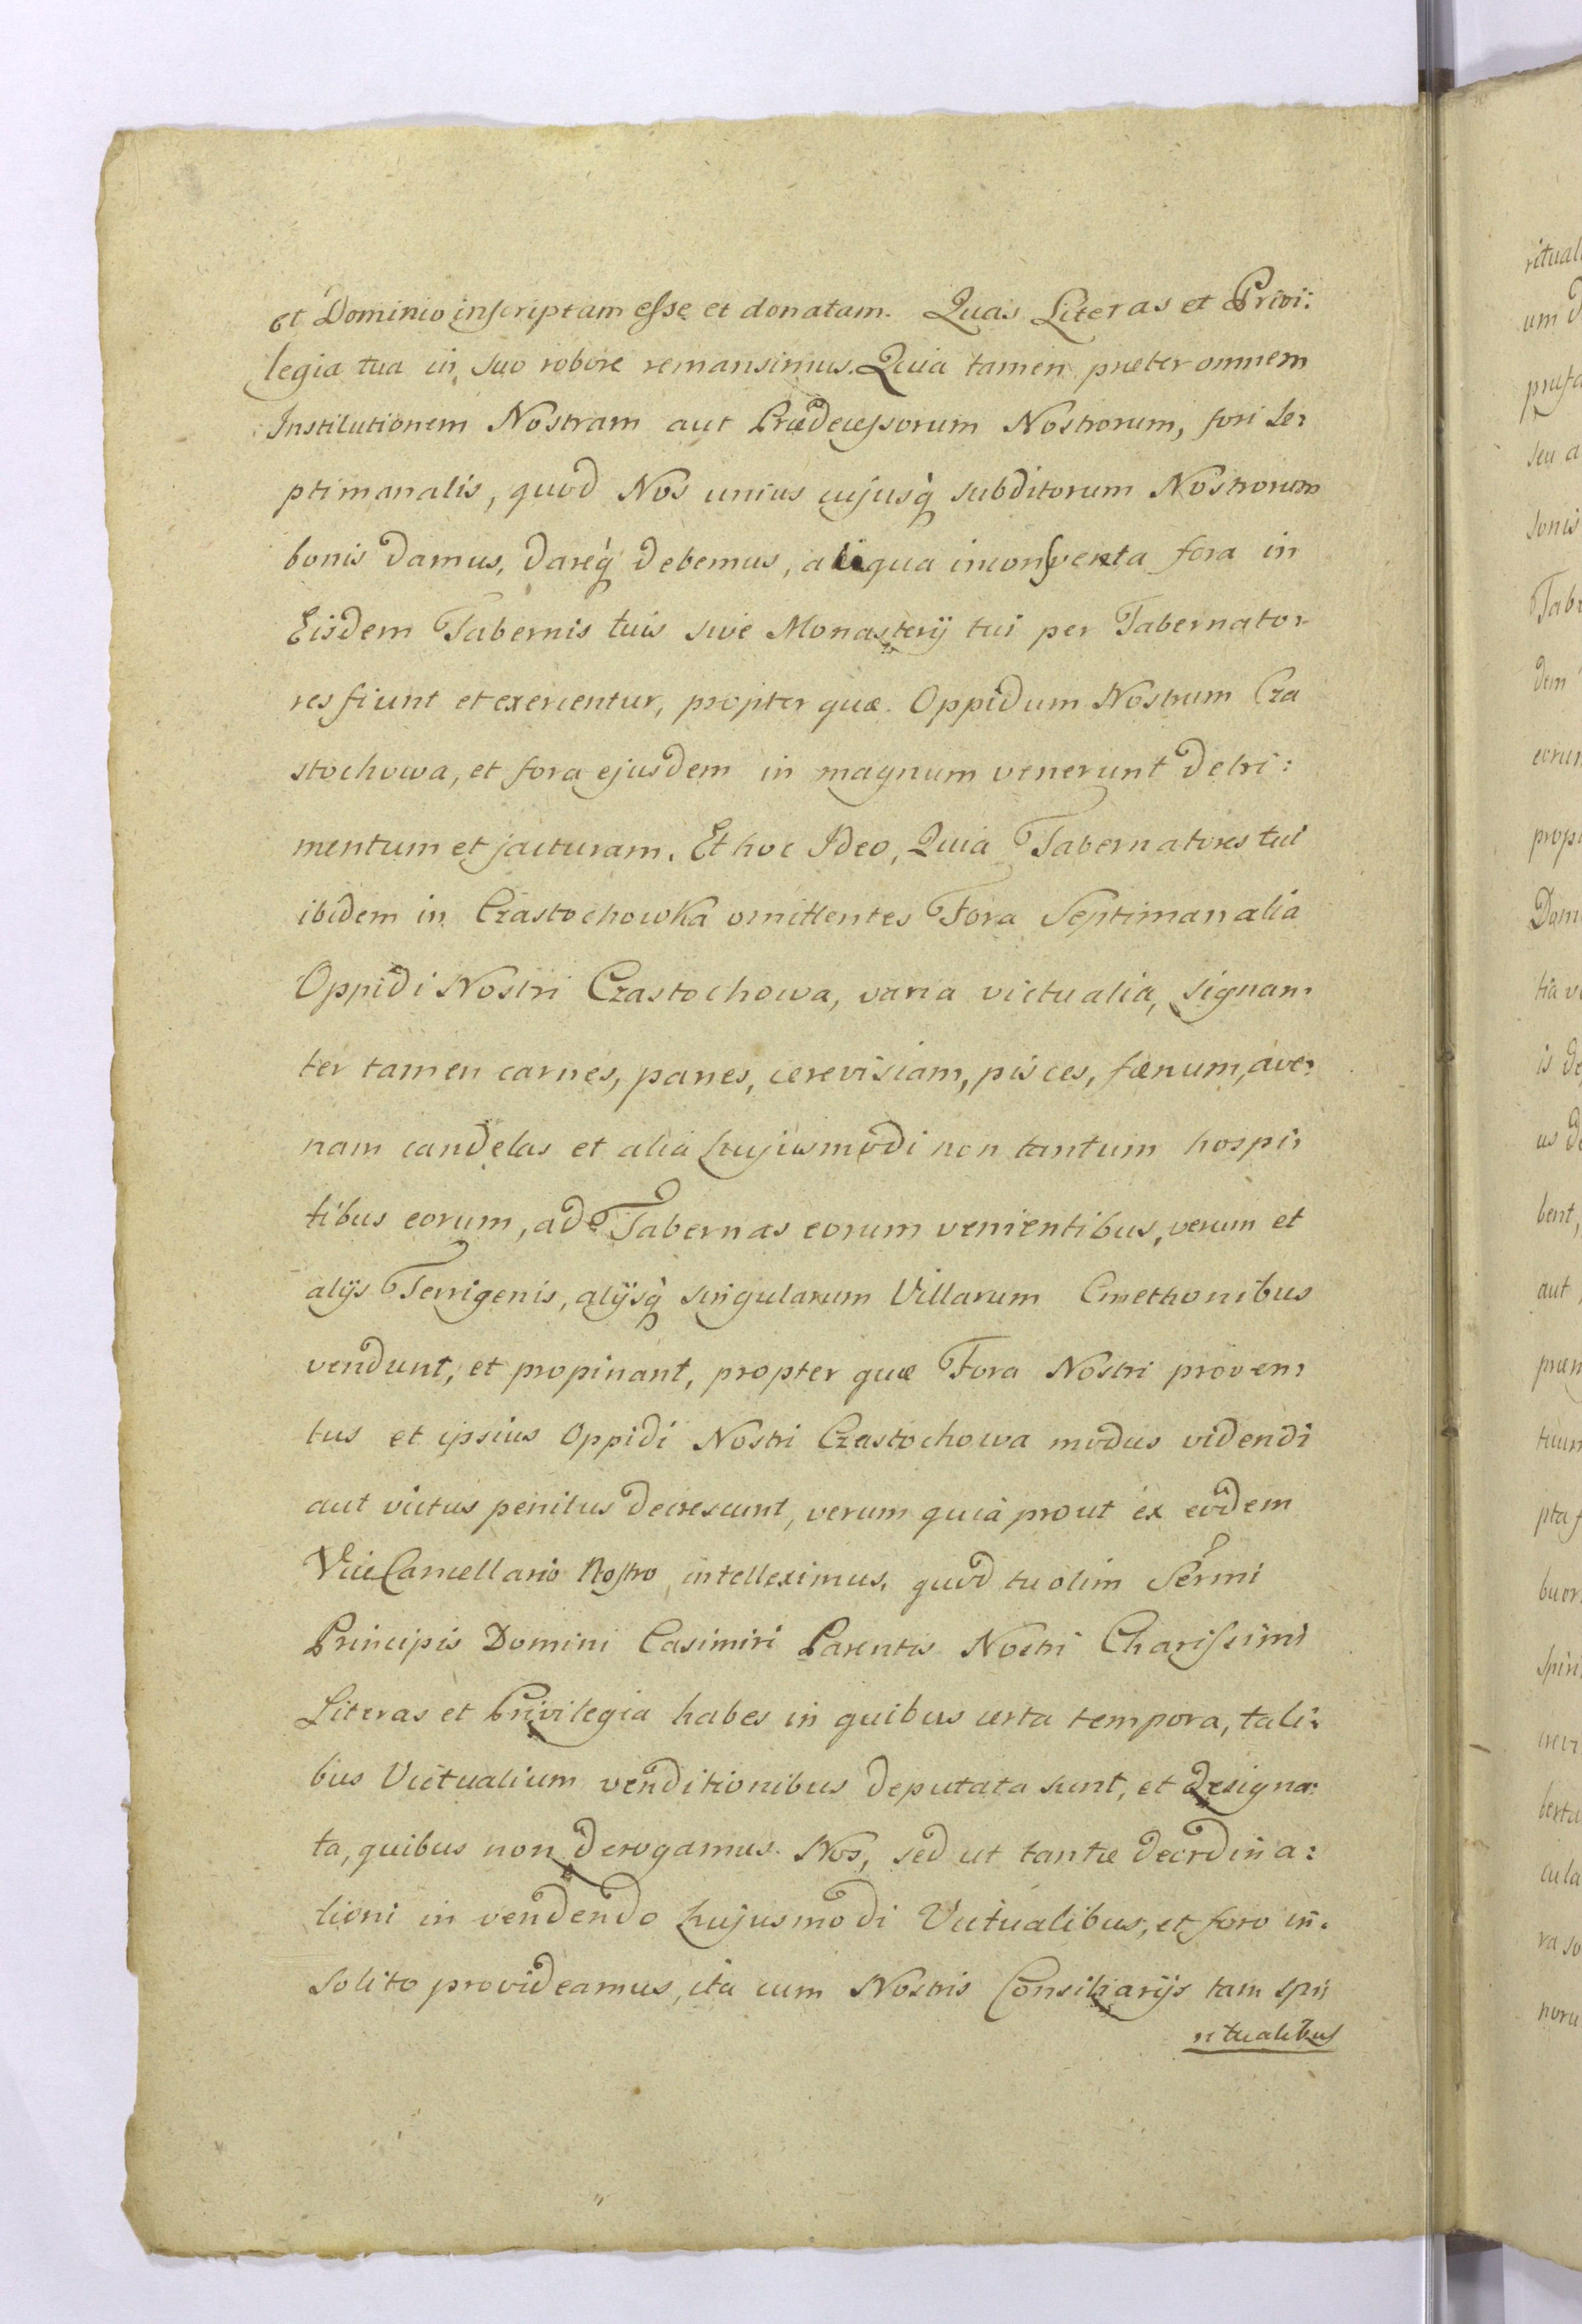 et Dominio inscriptam esse et donatam. Quas Literas et Privi:
legia tua in suo robore remansimus. Quia tamen præter omnem
Institutionem Nostram aut Prædecessorum Nostrorum, fori se:
ptimanalis, quod Nos unius cujusq̀ subditorum Nostrorum
bonis damus, dareq̀ debemus, aliqua inconsventa fora in
Eisdem Tabernis tuis sive Monasterij tui per Tabernato:
res fiunt et exercentur, propter quæ Oppidum Nostrum Cza
stochowa, et fora ejusdem in magnum venerunt detri:
mentum et jacturam. Et hoc Ideo, Quia Tabernatores tui
ibidem in Czastochowka omittentes Fora Septimanalia
Oppidi Nostri Czastochowa, varia victualia, signan:
ter tamen carnes, panes, cerevisiam, pisces, fænum, ave:
nam candelas et alia hujusmodi non tantum hospi:
tibus eorum, ad Tabernas eorum venientibus, verum et
alijs Terrigenis, alijsq̀ singularum Villarum Cmethonibus
vendunt, et propinant, propter quæ Fora Nostri proven:
tus et ipsius Oppidi Nostri Czastochowa modus videndi
aut victus penitus decrescunt, verum quia prout ex eodem
ViceCancellario Nostro intelleximus, quod tu olim Sermi
Principis Domini Casimiri Parentis Nostri Charissimi
Literas et Privilegia habes in quibus certa tempora, tali:
bus Victualium venditionibus deputata sunt, et designa:
ta, quibus non derogamus Nos, sed ut tantæ deordina:
tioni in vendendo hujusmodi Victualibus, et foro in:
solito provideamus, ita cum Nostris Consiliarijs tam spi:
ritualibus